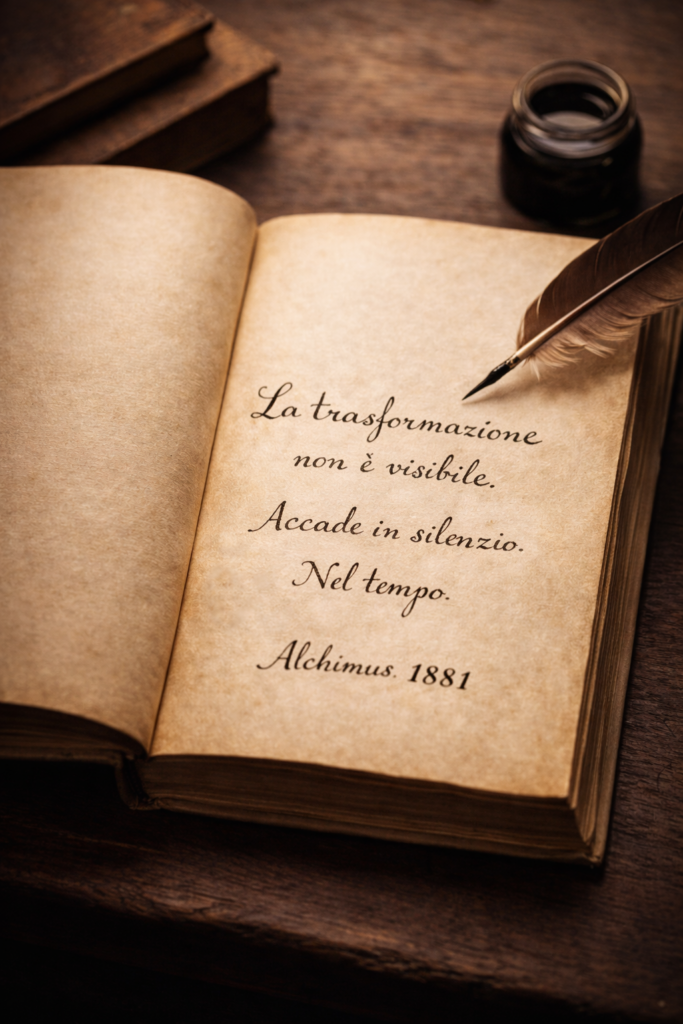 La trasformazione
non è visibile.
Accade in silenzio.
Nel tempo.
Alchimus. 1881